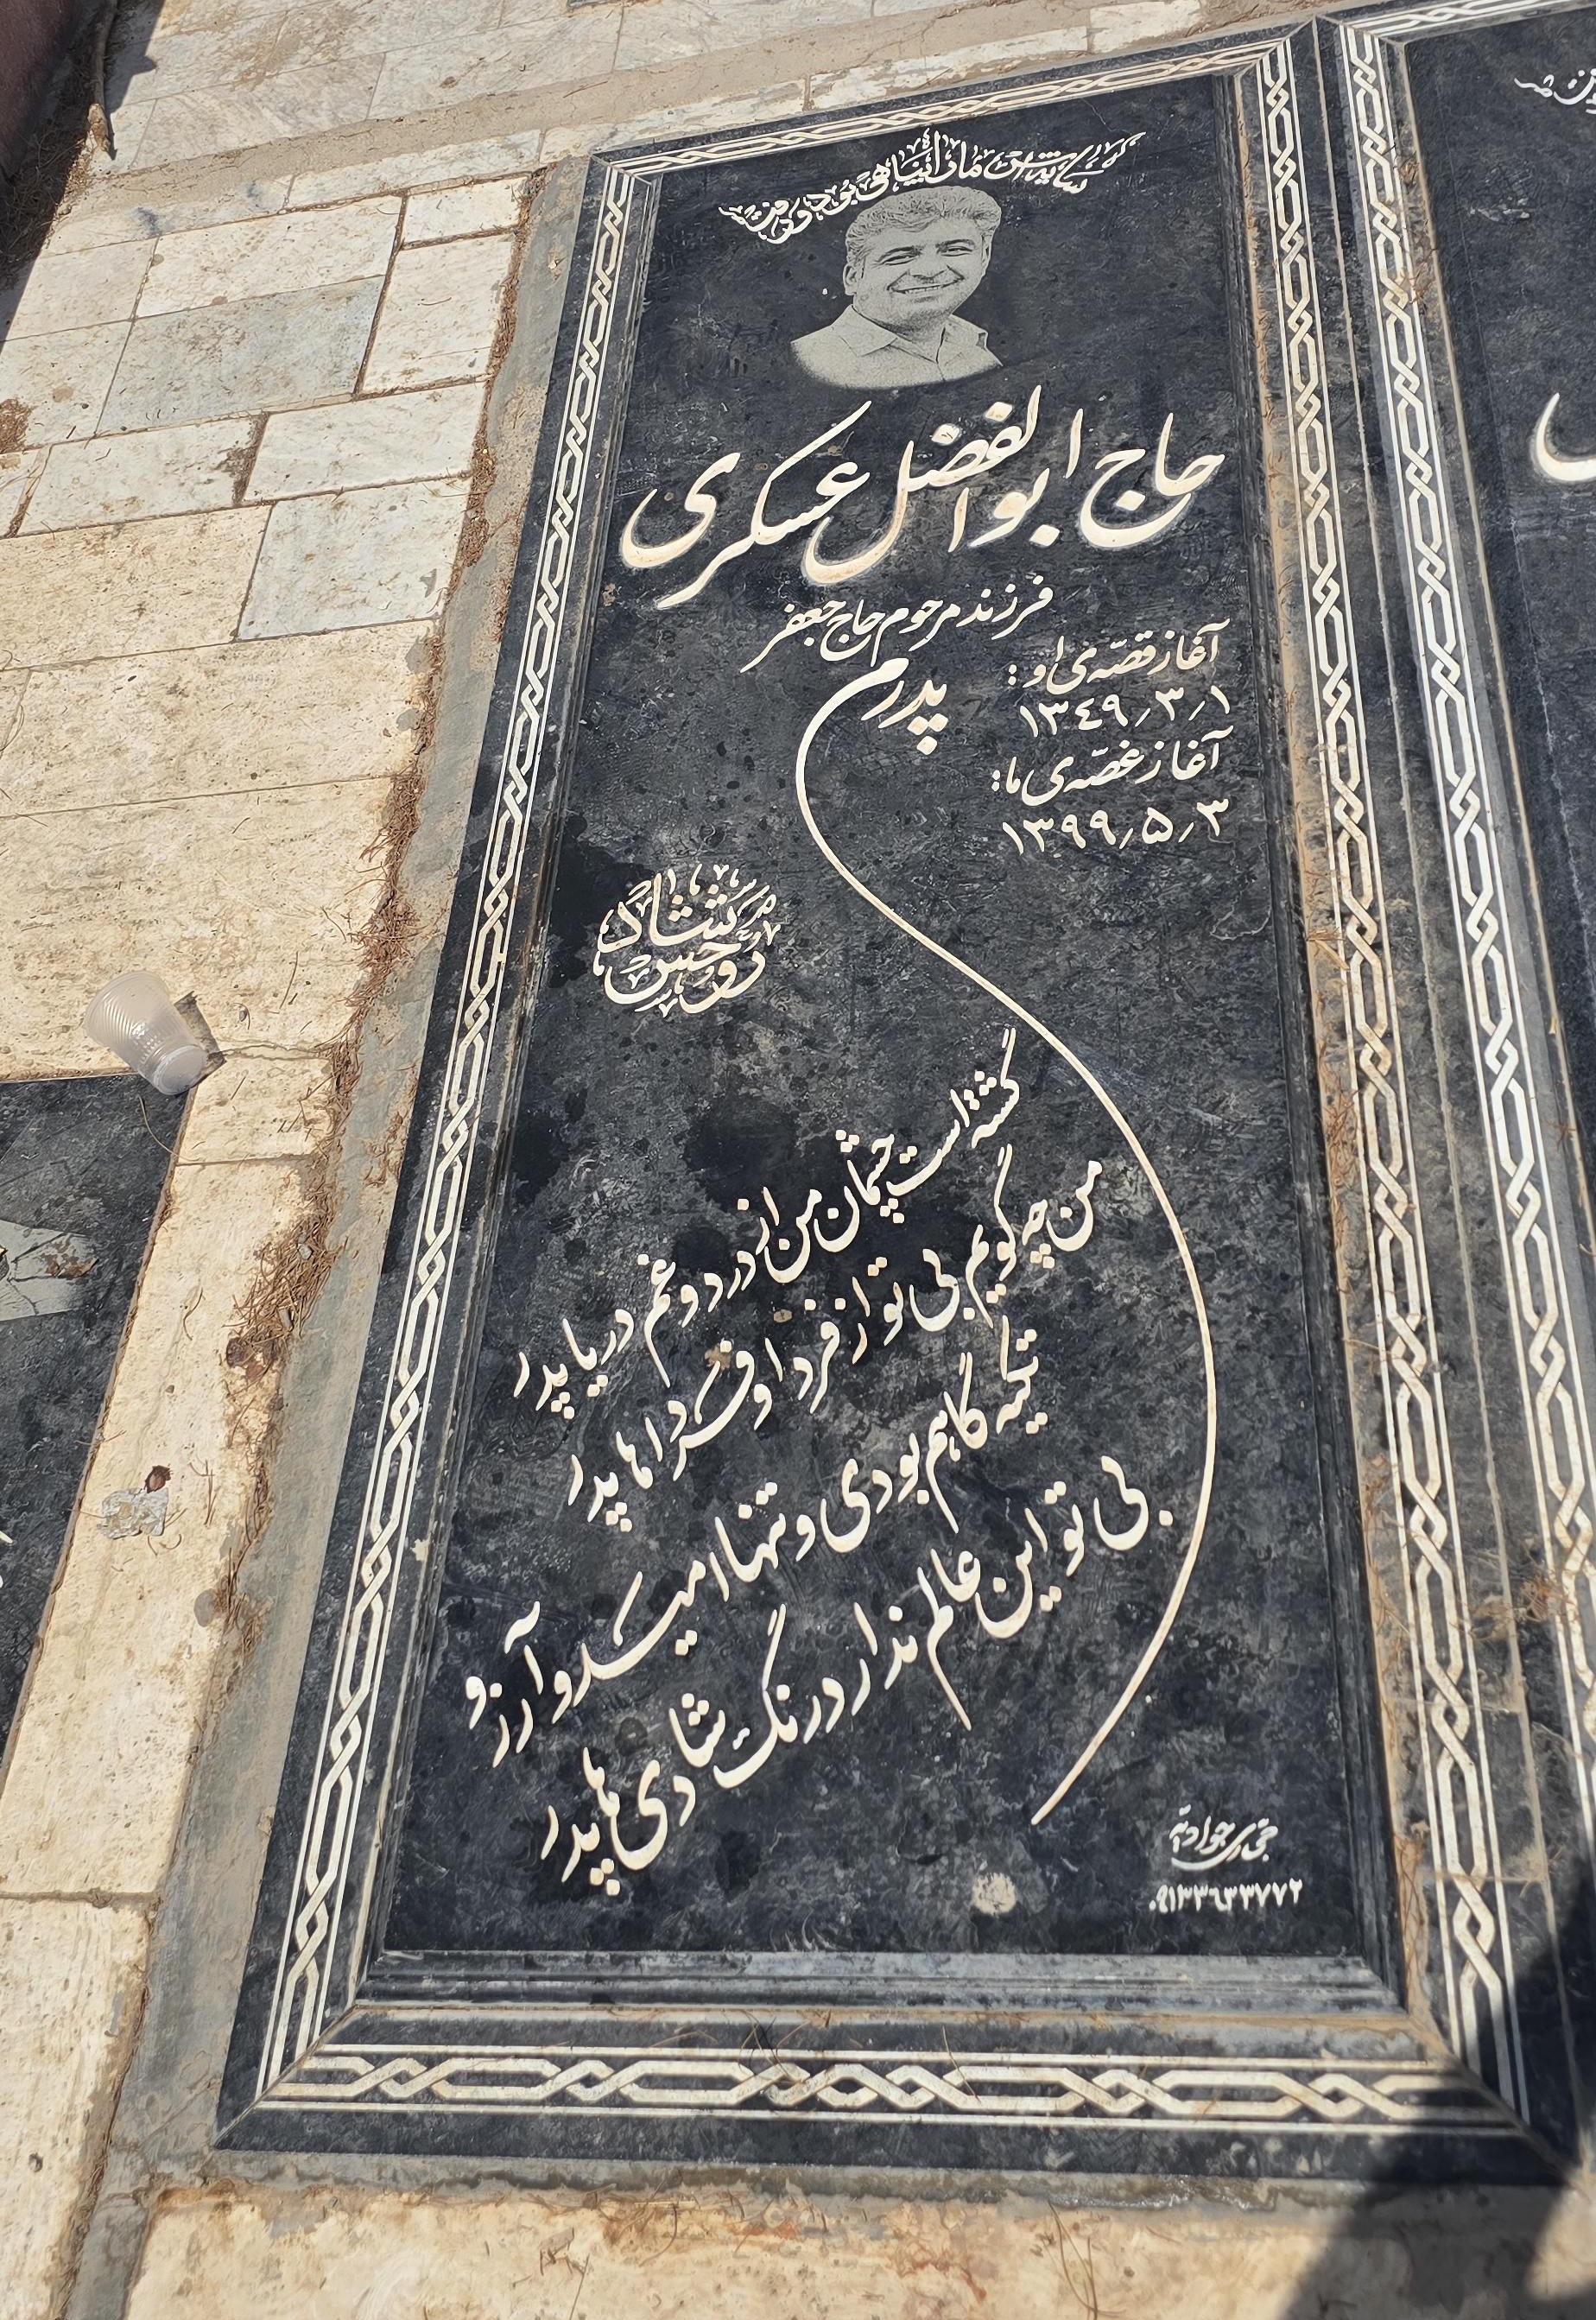 که سایه‌اش مارا پناهی بود و رفت
حاج ابوالفضل عسکری
فرزند مرحوم حاج جعفر
پدرم
آغاز قصّه‌ی او:
۱٫۳٫۱۳۴۹
آغاز غصّه‌ی ما:
۳٫۵٫۱۳۹۹
روحش شاد
گشته است چشمان من از درد و غم دریا پدر
من چه گویم بی تو از فردا و فرداها پدر
تکیه گاهم بودی و تنها امید و آرزو
بی تو این عالم ندارد رنگ شادی ها پدر
حجّاری جوادیّه
۰۹۱۳۳۶۳۳۷۷۲